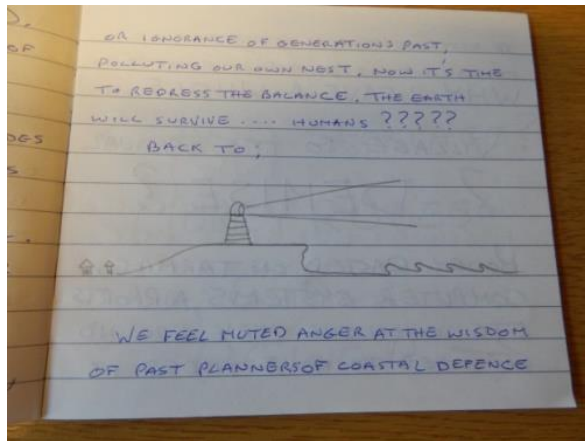 OR IGNORANCE OF GENERATIONS PAST,
POLLUTING OUR OWN NEST, NOW IT'S TIME
TO REDRESS THE BALANCE, THE EARTH
WILL SURVIVE .... HUMANS ?????
BACK TO;
WE FEEL MUTED ANGER AT THE WISDOM
OF PAST PLANNERS OF COASTAL DEFENCE